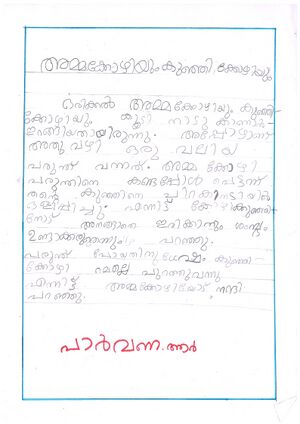 അമ്മക്കോഴിയും കുഞ്ഞിക്കോഴിയും
ഒരിക്കൽ അമ്മക്കോഴിയും കുഞ്ഞി
ക്കോഴിയും കൂടി നാടു കാണാൻ
ഇറങ്ങിയതായിരുന്നു. അപ്പോഴാണ്
അതു വഴി ഒരു വലിയ
പരുന്ത് വന്നത്. അമ്മ കോഴി
പറുന്തിനെ കണ്ടപ്പോൾ പെട്ടന്ന്
തന്റെ കുഞ്ഞിനെ ചിറകിനടിയിൽ
ഒളിപ്പിച്ചു. എന്നിട്ട് കോഴിക്കുഞ്ഞി
നോട് അനങ്ങാതെ ഇരിക്കാനും ശബ്ദം
ഉണ്ടാക്കരുതെന്നും പറഞ്ഞു.
പരുന്ത് പോയതിനു ശേഷം കുഞ്ഞി
ക്കോഴി മെല്ലെ പുറത്തുവന്നു
എന്നിട്ട് അമ്മക്കോഴിയോട് നന്ദി
പറഞ്ഞു.
പാർവന്ന. ആർ